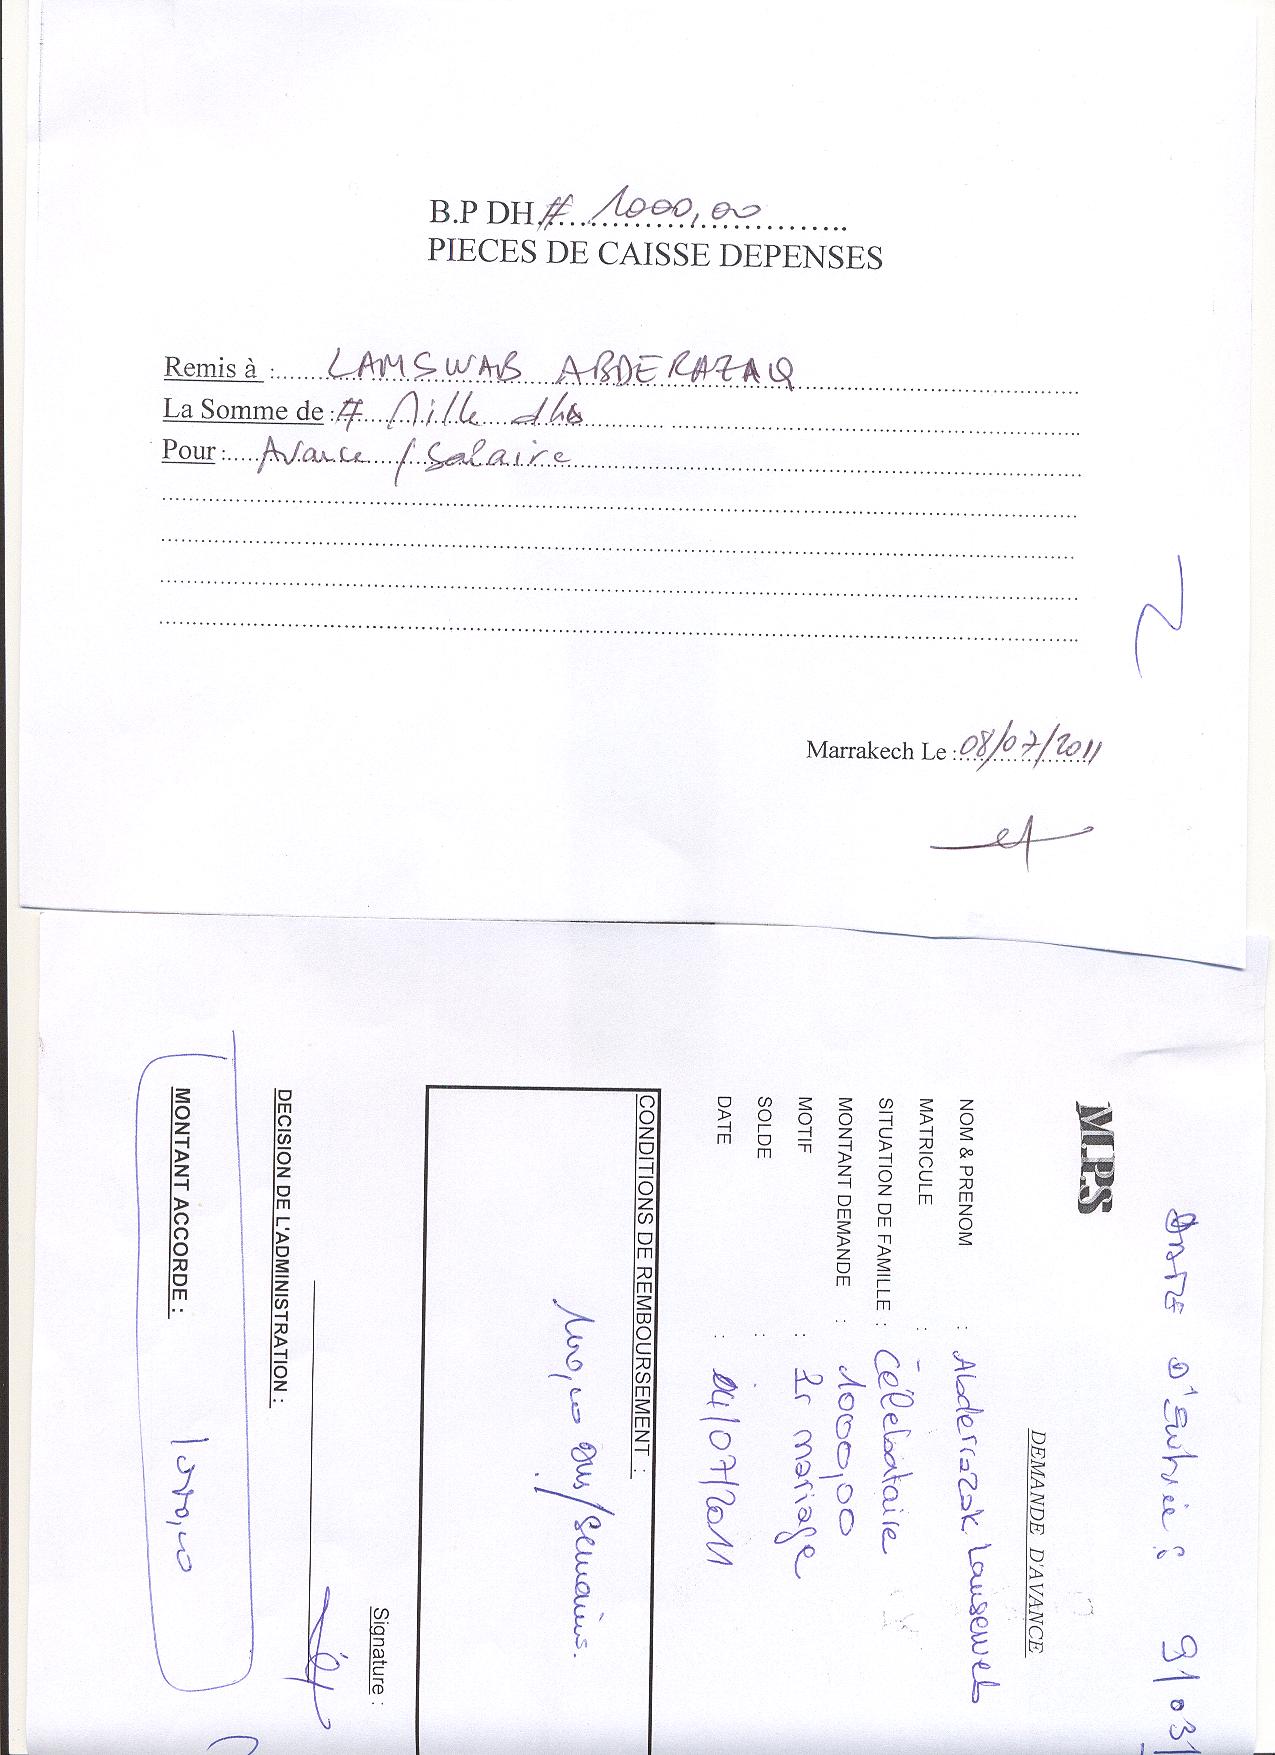 B.P DH # 1000,00
PIECES DE CAISSE DEPENSES
Remis à : LAMSWAB ABDERAZAQ
La Somme de : # Mille dhs
Pour : Avance / Salaire
Marrakech Le : 08/07/2011
DATE D'Entrée : 9/03/
MPS
DEMANDE D'AVANCE
NOM & PRENOM : Abderrazak Lamseweb
MATRICULE : -
SITUATION DE FAMILLE : Célebataire
MONTANT DEMANDE : 1000,00
MOTIF : Pr mariage
SOLDE :
DATE : 04/07/2011
CONDITIONS DE REMBOURSEMENT :
100,00 DHS/Semaines.
Signature :
DECISION DE L'ADMINISTRATION :
MONTANT ACCORDE : 1000,00